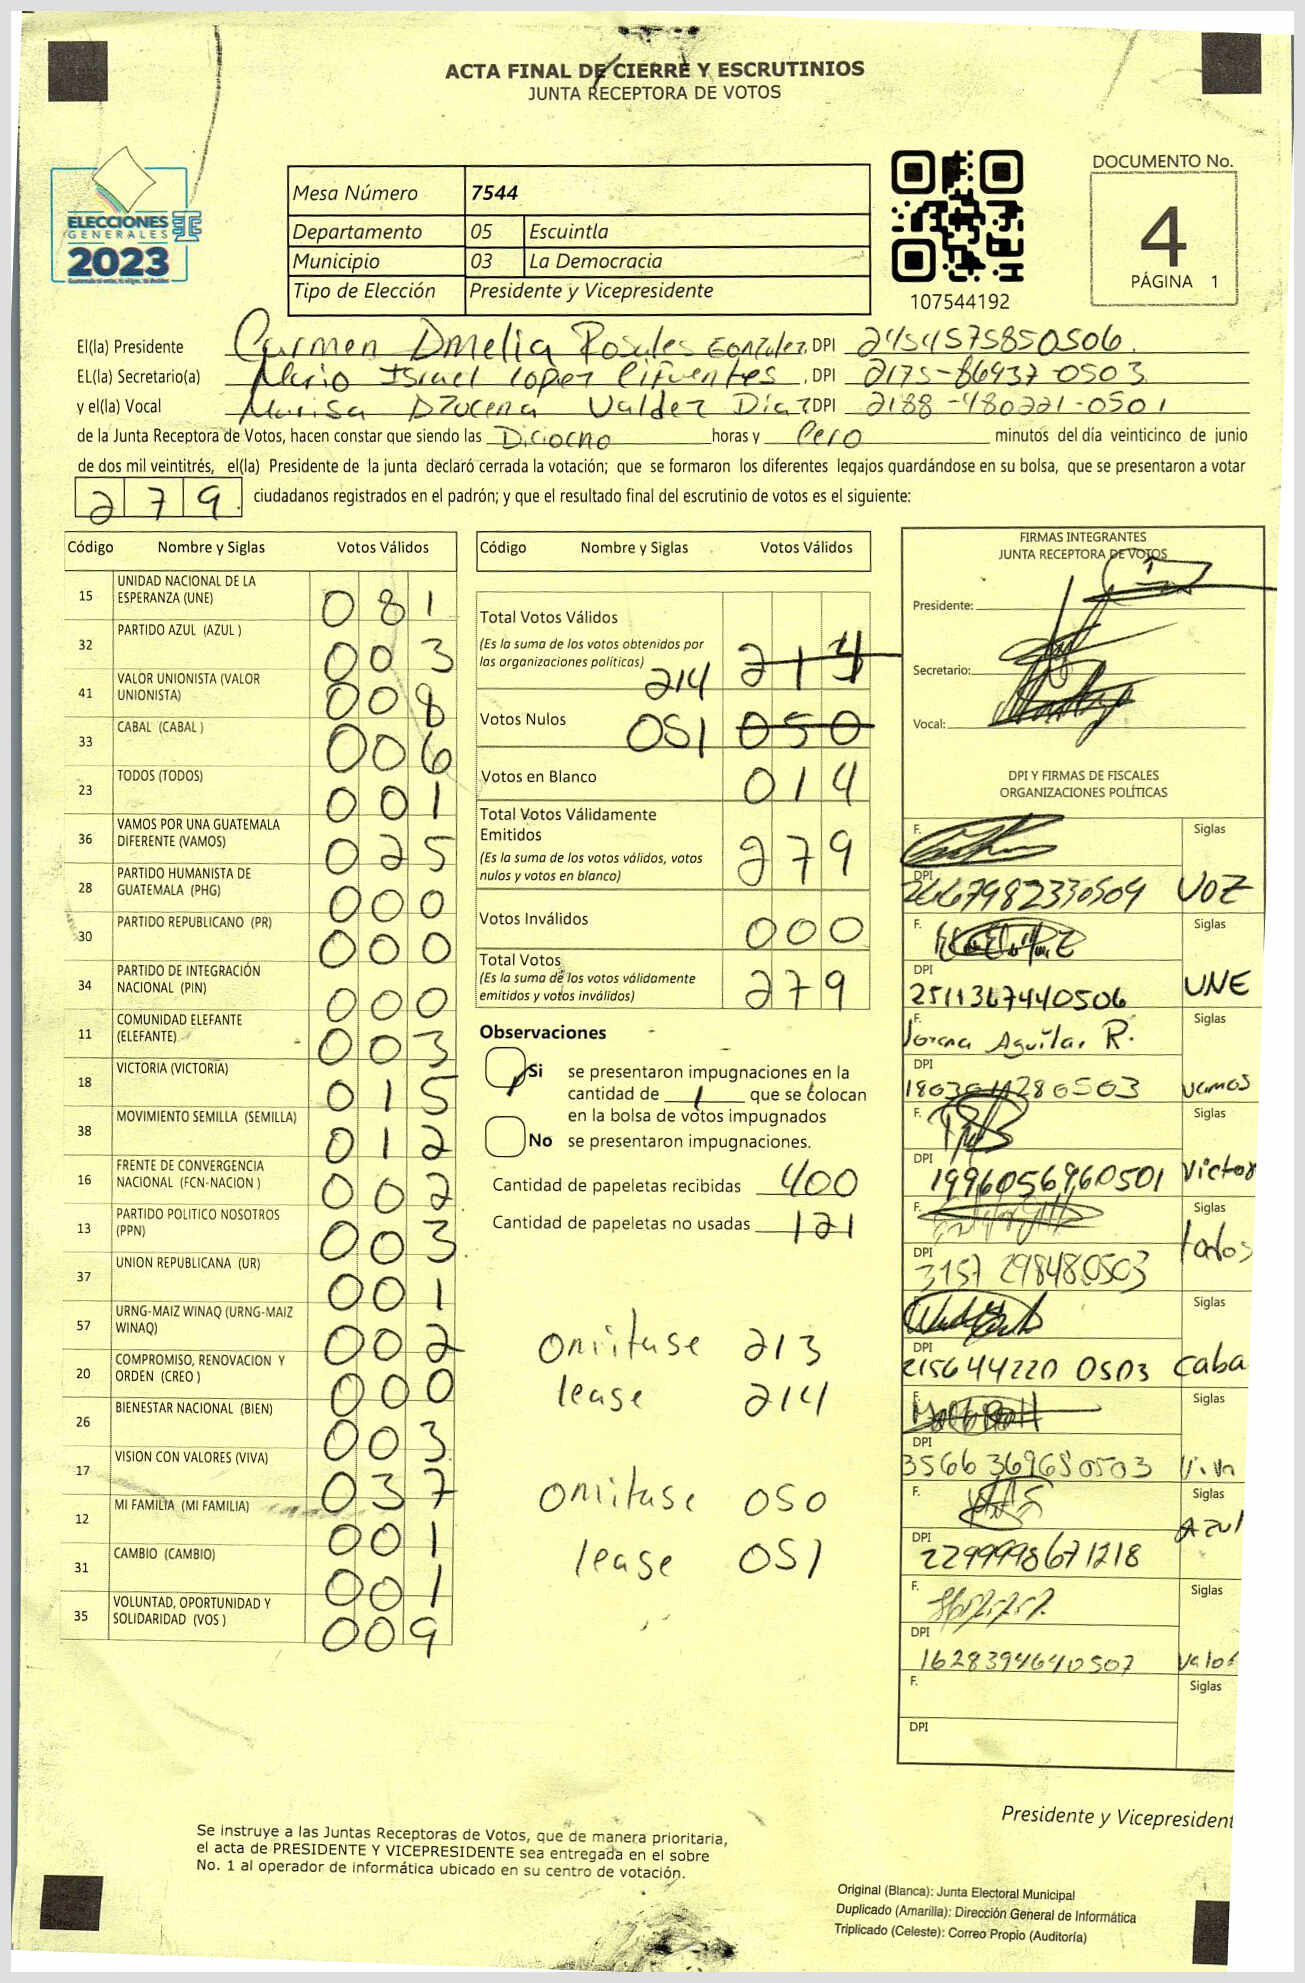 ACTA FINAL DE CIERRE Y ESCRUTINIOS
JUNTA RECEPTORA DE VOTOS
ELECCIONES
GENERALES
2023
Mesa Número 7544
Departamento 05 Escuintla
Municipio 03 La Democracia
Tipo de Elección Presidente y Vicepresidente
107544192
DOCUMENTO No.
4
PÁGINA 1
El(la) Presidente Carmen Amelia Rosales Gonzalez, DPI 2454575850506
EL(la) Secretario(a) Mario Israel Lopez Cifuentes, DPI 2175-86937-0503
y el(la) Vocal Marisa Azucena Valdez Diaz DPI 2188-480221-0501
de la Junta Receptora de Votos, hacen constar que siendo las Diciocho horas y Cero minutos del día veinticinco de junio
de dos mil veintitrés, el(la) Presidente de la junta declaró cerrada la votación; que se formaron los diferentes legajos guardándose en su bolsa, que se presentaron a votar
279 ciudadanos registrados en el padrón; y que el resultado final del escrutinio de votos es el siguiente:
Código Nombre y Siglas Votos Válidos
15 UNIDAD NACIONAL DE LA ESPERANZA (UNE) 081
32 PARTIDO AZUL (AZUL ) 003
41 VALOR UNIONISTA (VALOR UNIONISTA) 008
33 CABAL (CABAL ) 006
23 TODOS (TODOS) 001
36 VAMOS POR UNA GUATEMALA DIFERENTE (VAMOS) 025
28 PARTIDO HUMANISTA DE GUATEMALA (PHG) 000
30 PARTIDO REPUBLICANO (PR) 000
34 PARTIDO DE INTEGRACIÓN NACIONAL (PIN) 000
11 COMUNIDAD ELEFANTE (ELEFANTE) 003
18 VICTORIA (VICTORIA) 015
38 MOVIMIENTO SEMILLA (SEMILLA) 012
16 FRENTE DE CONVERGENCIA NACIONAL (FCN-NACION ) 002
13 PARTIDO POLITICO NOSOTROS (PPN) 003
37 UNION REPUBLICANA (UR) 001
57 URNG-MAIZ WINAQ (URNG-MAIZ WINAQ) 002
20 COMPROMISO, RENOVACION Y ORDEN (CREO ) 000
26 BIENESTAR NACIONAL (BIEN) 003
17 VISION CON VALORES (VIVA) 037
12 MI FAMILIA (MI FAMILIA) 001
31 CAMBIO (CAMBIO) 001
35 VOLUNTAD, OPORTUNIDAD Y SOLIDARIDAD (VOS ) 009
Código Nombre y Siglas Votos Válidos
Total Votos Válidos
(Es la suma de los votos obtenidos por
las organizaciones políticas) 214
Votos Nulos 051 050
Votos en Blanco 014
Total Votos Válidamente
Emitidos 279
(Es la suma de los votos válidos, votos
nulos y votos en blanco)
Votos Inválidos 000
Total Votos 279
(Es la suma de los votos válidamente
emitidos y votos inválidos)
Observaciones
Si se presentaron impugnaciones en la
cantidad de 1 que se colocan
en la bolsa de votos impugnados
No se presentaron impugnaciones.
Cantidad de papeletas recibidas 400
Cantidad de papeletas no usadas 121
omitase 213
lease 214
omitase 050
lease 051
FIRMAS INTEGRANTES
JUNTA RECEPTORA DE VOTOS
Presidente:
Secretario:
Vocal:
DPI Y FIRMAS DE FISCALES
ORGANIZACIONES POLÍTICAS
F. Siglas
DPI 2467982330509 VOZ
F. Siglas
DPI 2511367440506 UNE
F. Lorena Aguilar R. Siglas
DPI vamos
F. Siglas
DPI 1996056960501 Victor
F. Siglas
DPI 3157 298480503 todos
F. Siglas
DPI 215644220 0503 Caba
F. Siglas
DPI 3566 369680503 Viva
F. Siglas
DPI 2299998671218 Azul
F. Siglas
DPI 1628394640507 Valor
F. Siglas
DPI
Presidente y Vicepresident
Se instruye a las Juntas Receptoras de Votos, que de manera prioritaria,
el acta de PRESIDENTE Y VICEPRESIDENTE sea entregada en el sobre
No. 1 al operador de informática ubicado en su centro de votación.
Original (Blanca): Junta Electoral Municipal
Duplicado (Amarilla): Dirección General de Informática
Triplicado (Celeste): Correo Propio (Auditoría)